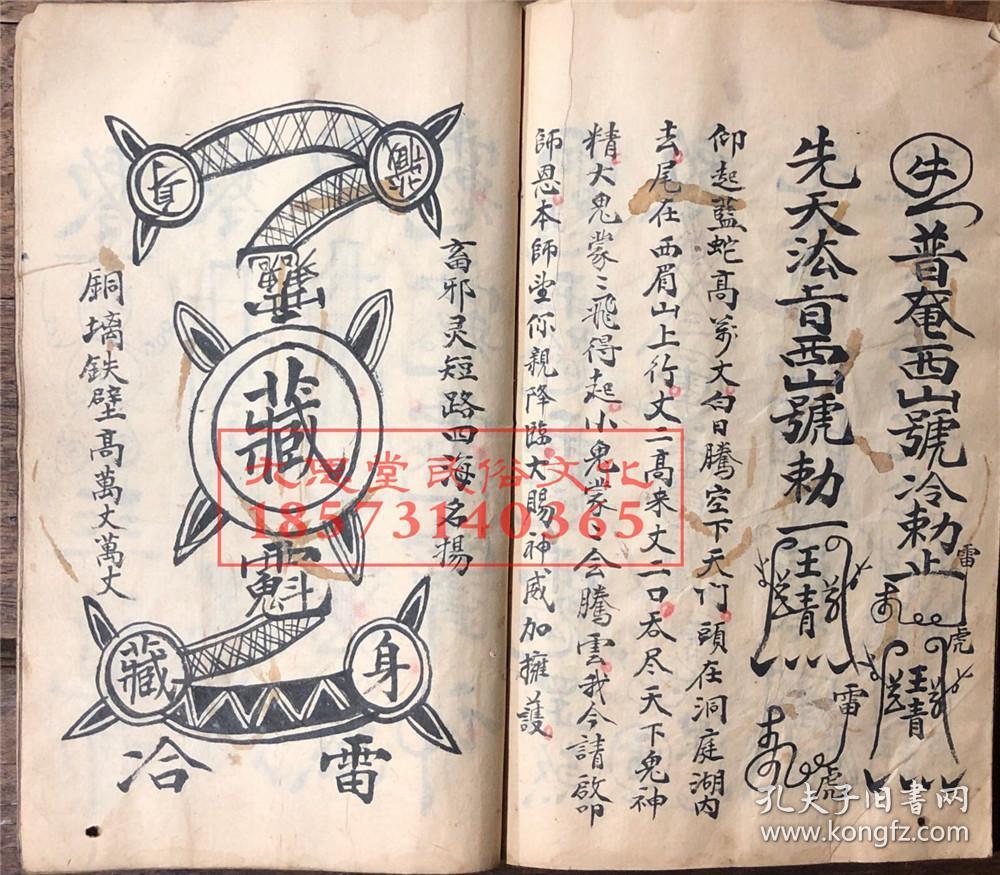 普奄西山號冷勅止
雷
虎
先天法旨西山號勅
王青
雷
虎
仰起藍蛇高萬丈白日騰空下天门頭在洞庭湖内
去尾在西眉山上行丈二高来丈二口吞尽天下鬼神
精大鬼蒙〻飛得起小鬼蒙〻会騰雲我今請啟叩
師恩本師堂你親降臨大賜神威加擁護
畜邪灵短路四海名揚
身
藏
藏
魁
藏
身
銅墻鉄壁高萬丈萬丈
雷
冾
大思堂民俗文化
18573140365
孔夫子旧书网
www.kongfz.com